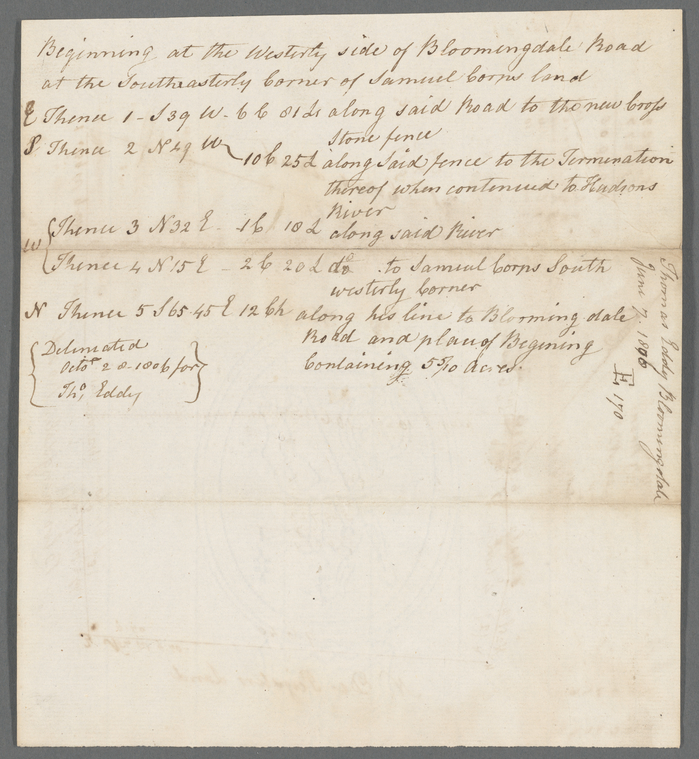 Beginning at the Westerly side of Bloomingdale Road
at the Southeasterly Corner of Samuel Corps land
E Thence 1 - S 39 W - 6 C 81 Ls along said Road to the new Cross
Stone fence
S Thence 2 N 49 W 10 C 25 L along said fence to the Termination
thereof when continued to Hudsons
River
W Thence 3 N 32 E - 1 C 18 L along said River
Thence 4 N 15 E - 2 C 20 L do to Samuel Corps South
westerly Corner
N Thence 5 S 65-45 E 12 Ch along his line to Blooming dale
Road and place of Begining
Containing 5 5/10 Acres.
Delineated
Octor 28-1806 for
Tho, Eddy
Thomas Eddy Bloomingdale
June 7. 1806
E 170